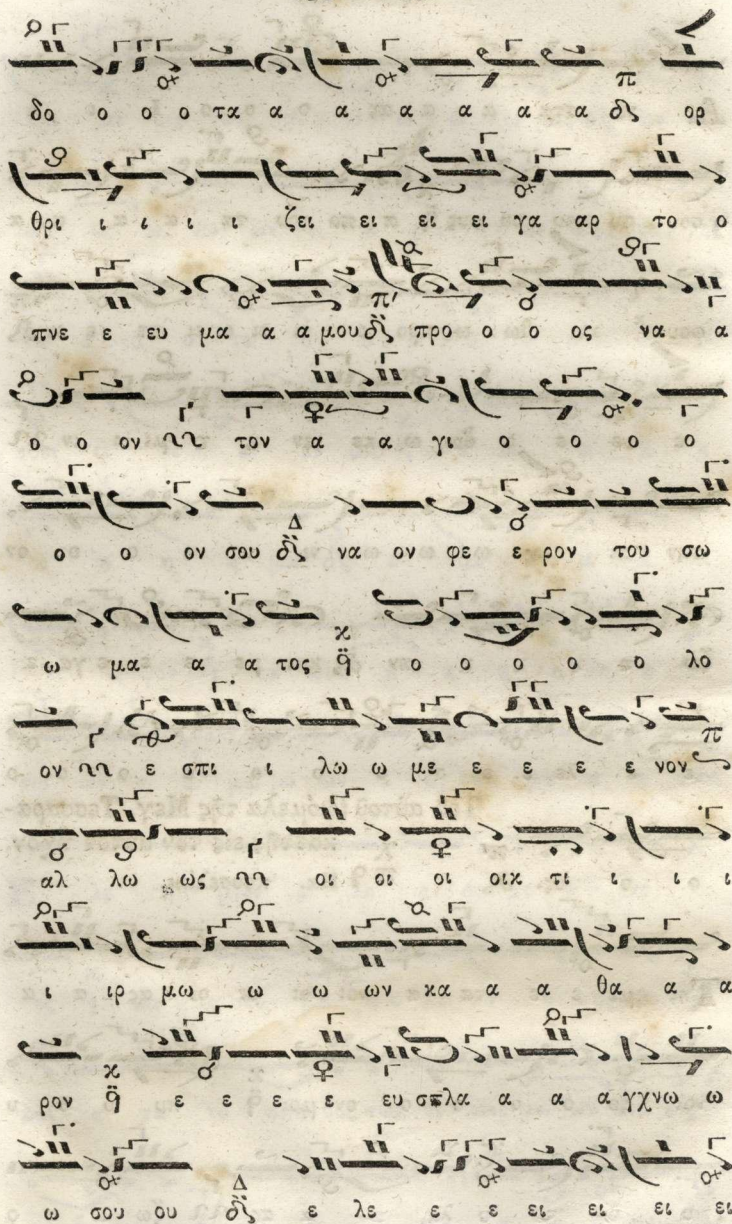 δο ο ο ο τα α α α α α α α ορ
θρι ι ι ι ι ζει ει ει ει γα αρ το ο
πνε ε ευ μα α α μου προ ο ο ος να α
ο ο ον τον α α γι ο ο ο ο
ο ο ον σου να ον φε ε ρον του σω
ω μα α α τος ο ο ο ο ο λο
ον ε σπι ι λω ω με ε ε ε ε νον
αλ λω ως οι οι οι οικ τι ι ι ι
ι ιρ μω ω ω ων κα α α θα α α
ρον ε ε ε ε ευ σπλα α α α γχνω ω
ω σου ου ε λε ε ε ει ει ει ει